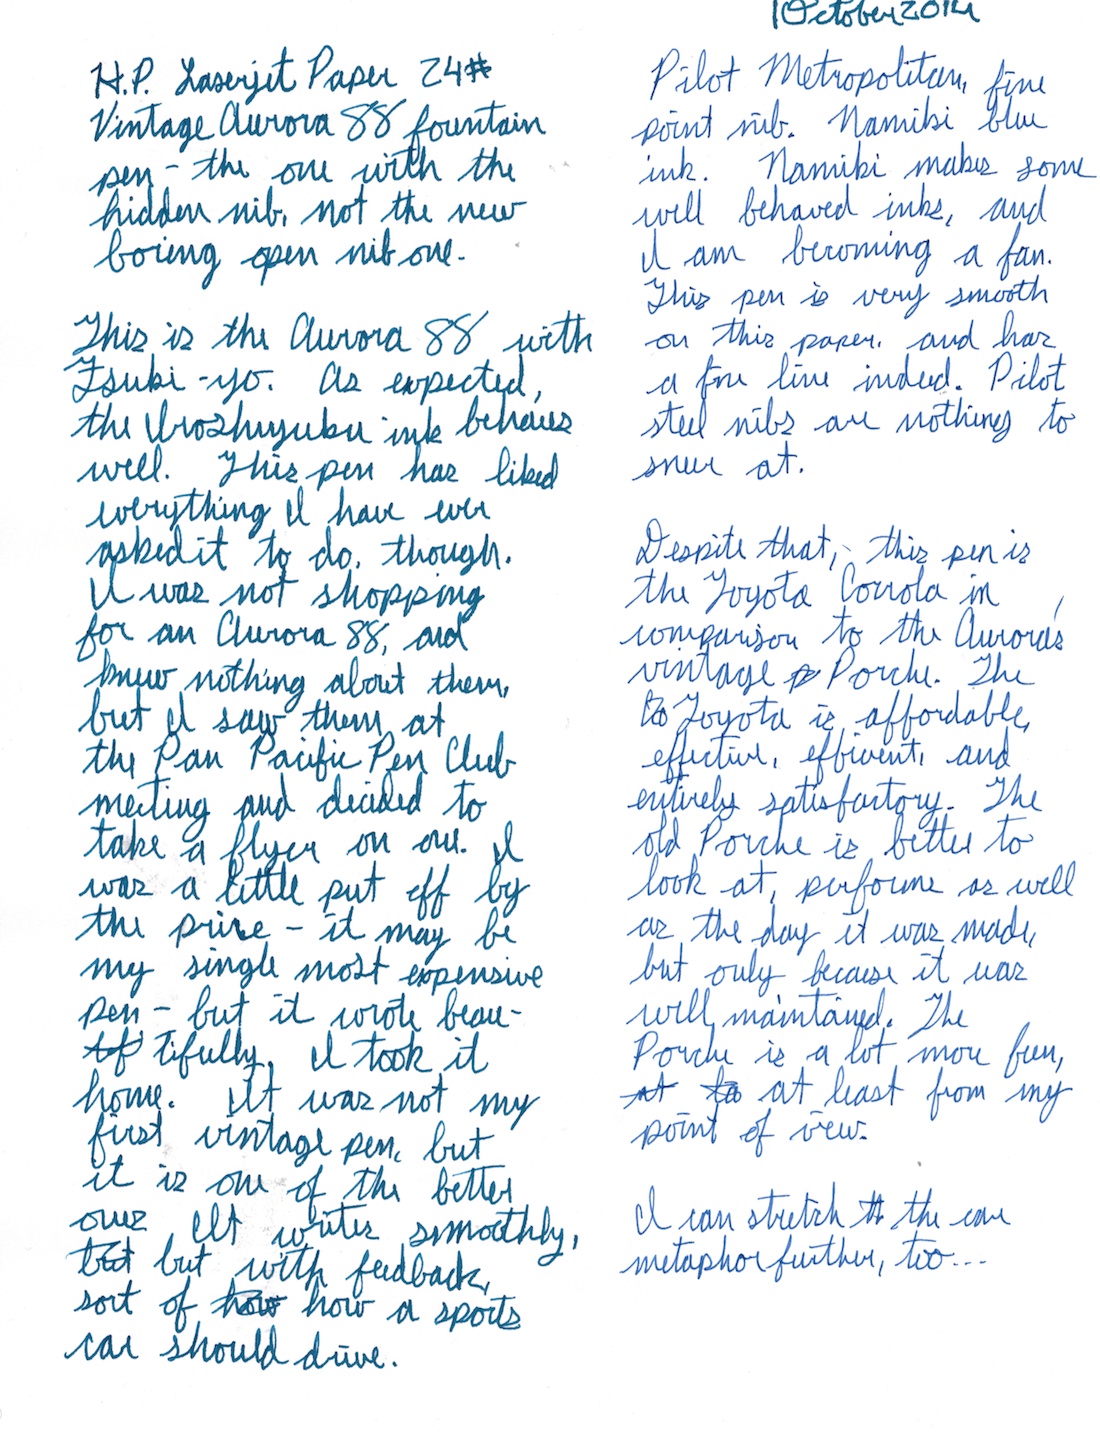 1 October 2014
H.P. Laserjet Paper 24#
Vintage Aurora 88 fountain
pen - the one with the
hidden nib, not the new
boring open nib one.
This is the Aurora 88 with
Tsuki-yo. As expected,
the Iroshizuku ink behaves
well. This pen has liked
everything I have ever
asked it to do, though.
I was not shopping
for an Aurora 88, and
knew nothing about them,
but I saw them at
the Pan Pacific Pen Club
meeting and decided to
take a flyer on one. I
was a little put off by
the price - it may be
my single most expensive
pen - but it wrote beau-
tifully. I took it
home. It was not my
first vintage pen, but
it is one of the better
ones It writes smoothly,
but but with feedback,
sort of how how a sports
car should drive.
Pilot Metropolitan, fine
point nib. Namiki blue
ink. Namiki makes some
well behaved inks, and
I am becoming a fan.
This pen is very smooth
on this paper, and has
a fine line indeed. Pilot
steel nibs are nothing to
sneer at.
Despite that, this pen is
the Toyota Corrola in
comparison to the Aurora's
vintage Porche. The
to Toyota is affordable,
effective, efficient, and
entirely satisfactory. The
old Porche is better to
look at, performs as well
as the day it was made,
but only because it was
well maintained. The
Porche is a lot more fun,
at to at least from my
point of view.
I can stretch th the car
metaphor further, too...